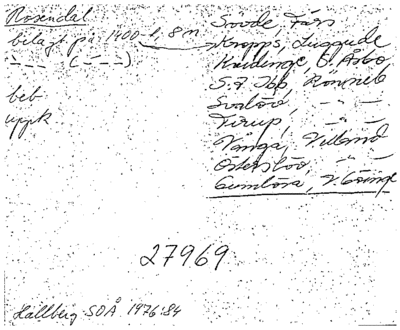 Rosendal
belagt på 1400-t, 8 m
– – – ( – – – )
beb
uppk
Sövde, Färs
Kropps, Luggude
Kvidinge, Ö. Åsbo
S:t Ibb, Rönneb
Svalöv, – " –
Tirup, – " –
Vånga, Villand
Österslöv, – " –
Gumlösa, V. Göinge
27969
Hallberg SOÅ 1976:84